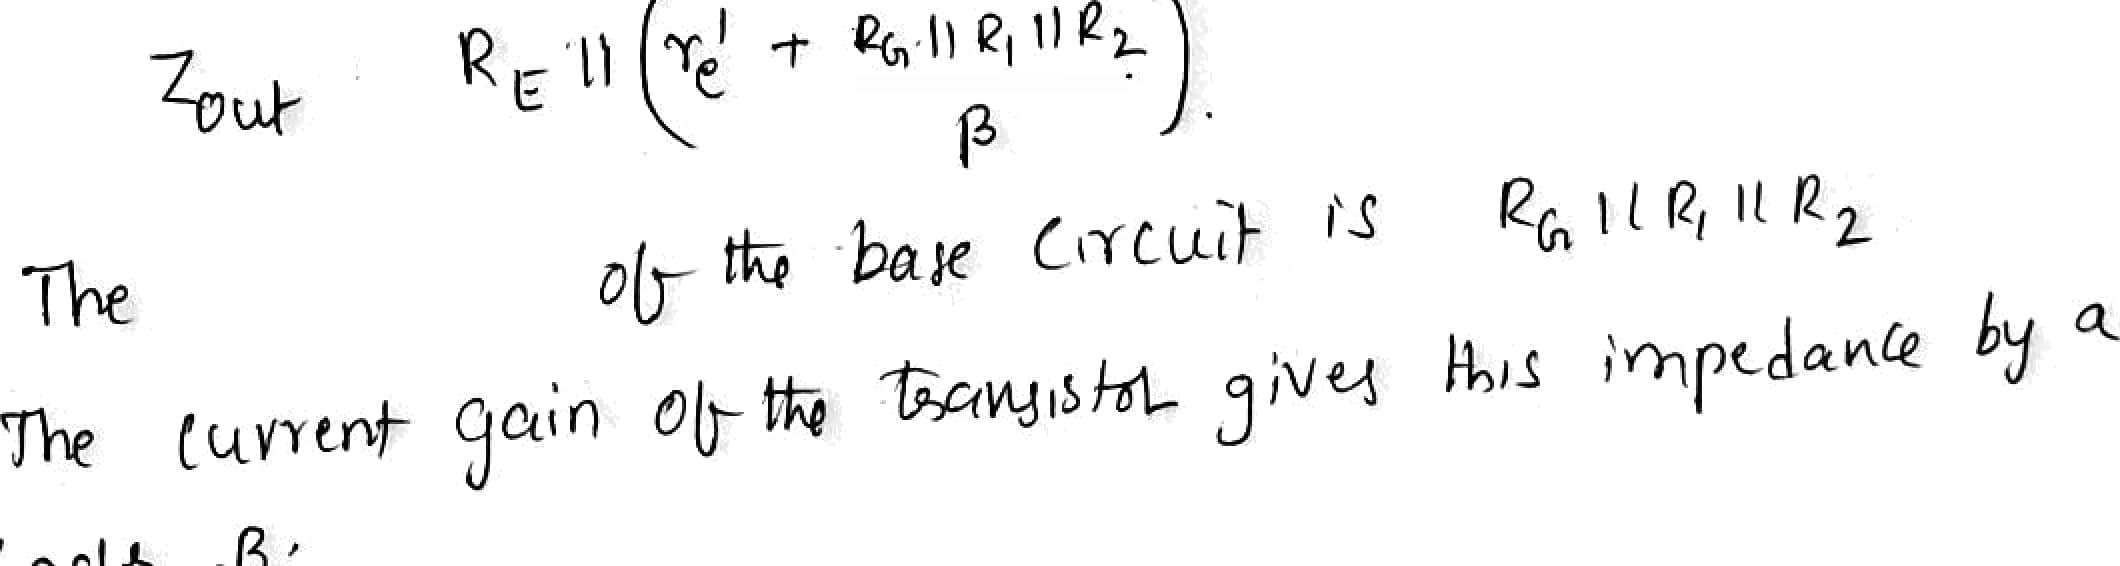 Zout RE || (re' + RG || R1 || R2 / β).
The of the base circuit is RG || R1 || R2
The current gain of the transistor gives this impedance by a
β.